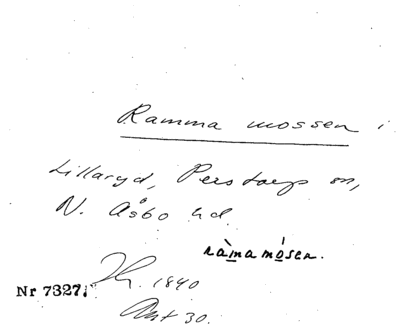 Ramma mossen i
Lillaryd, Perstorps sn,
N. Åsbo hd.
ràmamósen.
Nr 7327. 1840
30.